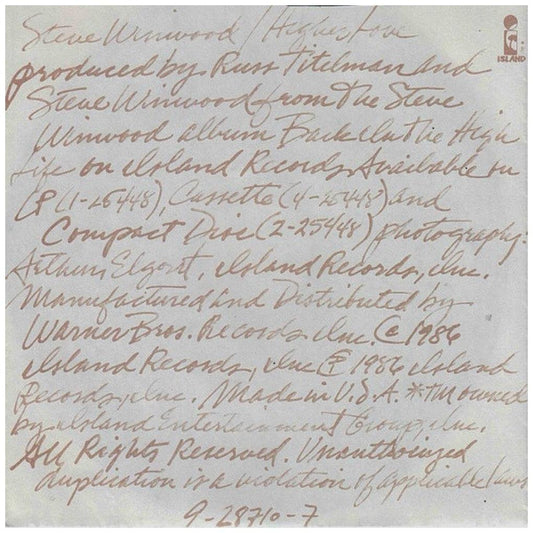 Steve Winwood / Higher Love
ISLAND
produced by Russ Titelman and
Steve Winwood from the Steve
Winwood album Back In The High
Life on Island Records. Available on
LP (1-25448), Cassette (4-25448) and
Compact Disc (2-25448) photography:
Arthur Elgort, Island Records, Inc.
Manufactured and Distributed by
Warner Bros. Records Inc. © 1986
Island Records, Inc ℗ 1986 Island
Records, Inc. Made in U.S.A. *TM owned
by Island Entertainment Group, Inc.
All Rights Reserved. Unauthorized
duplication is a violation of applicable laws
9-28710-7